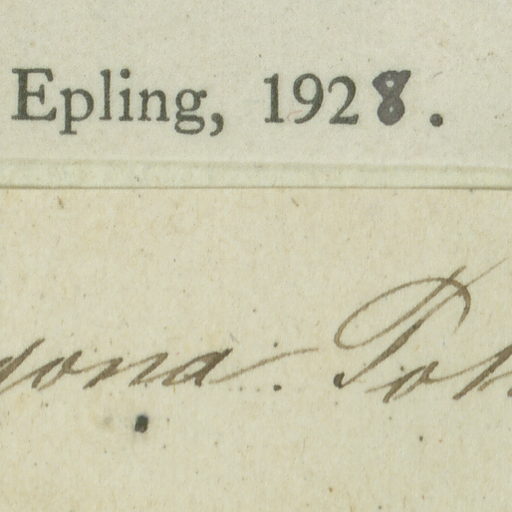 Epling, 1928.
gona. Poh